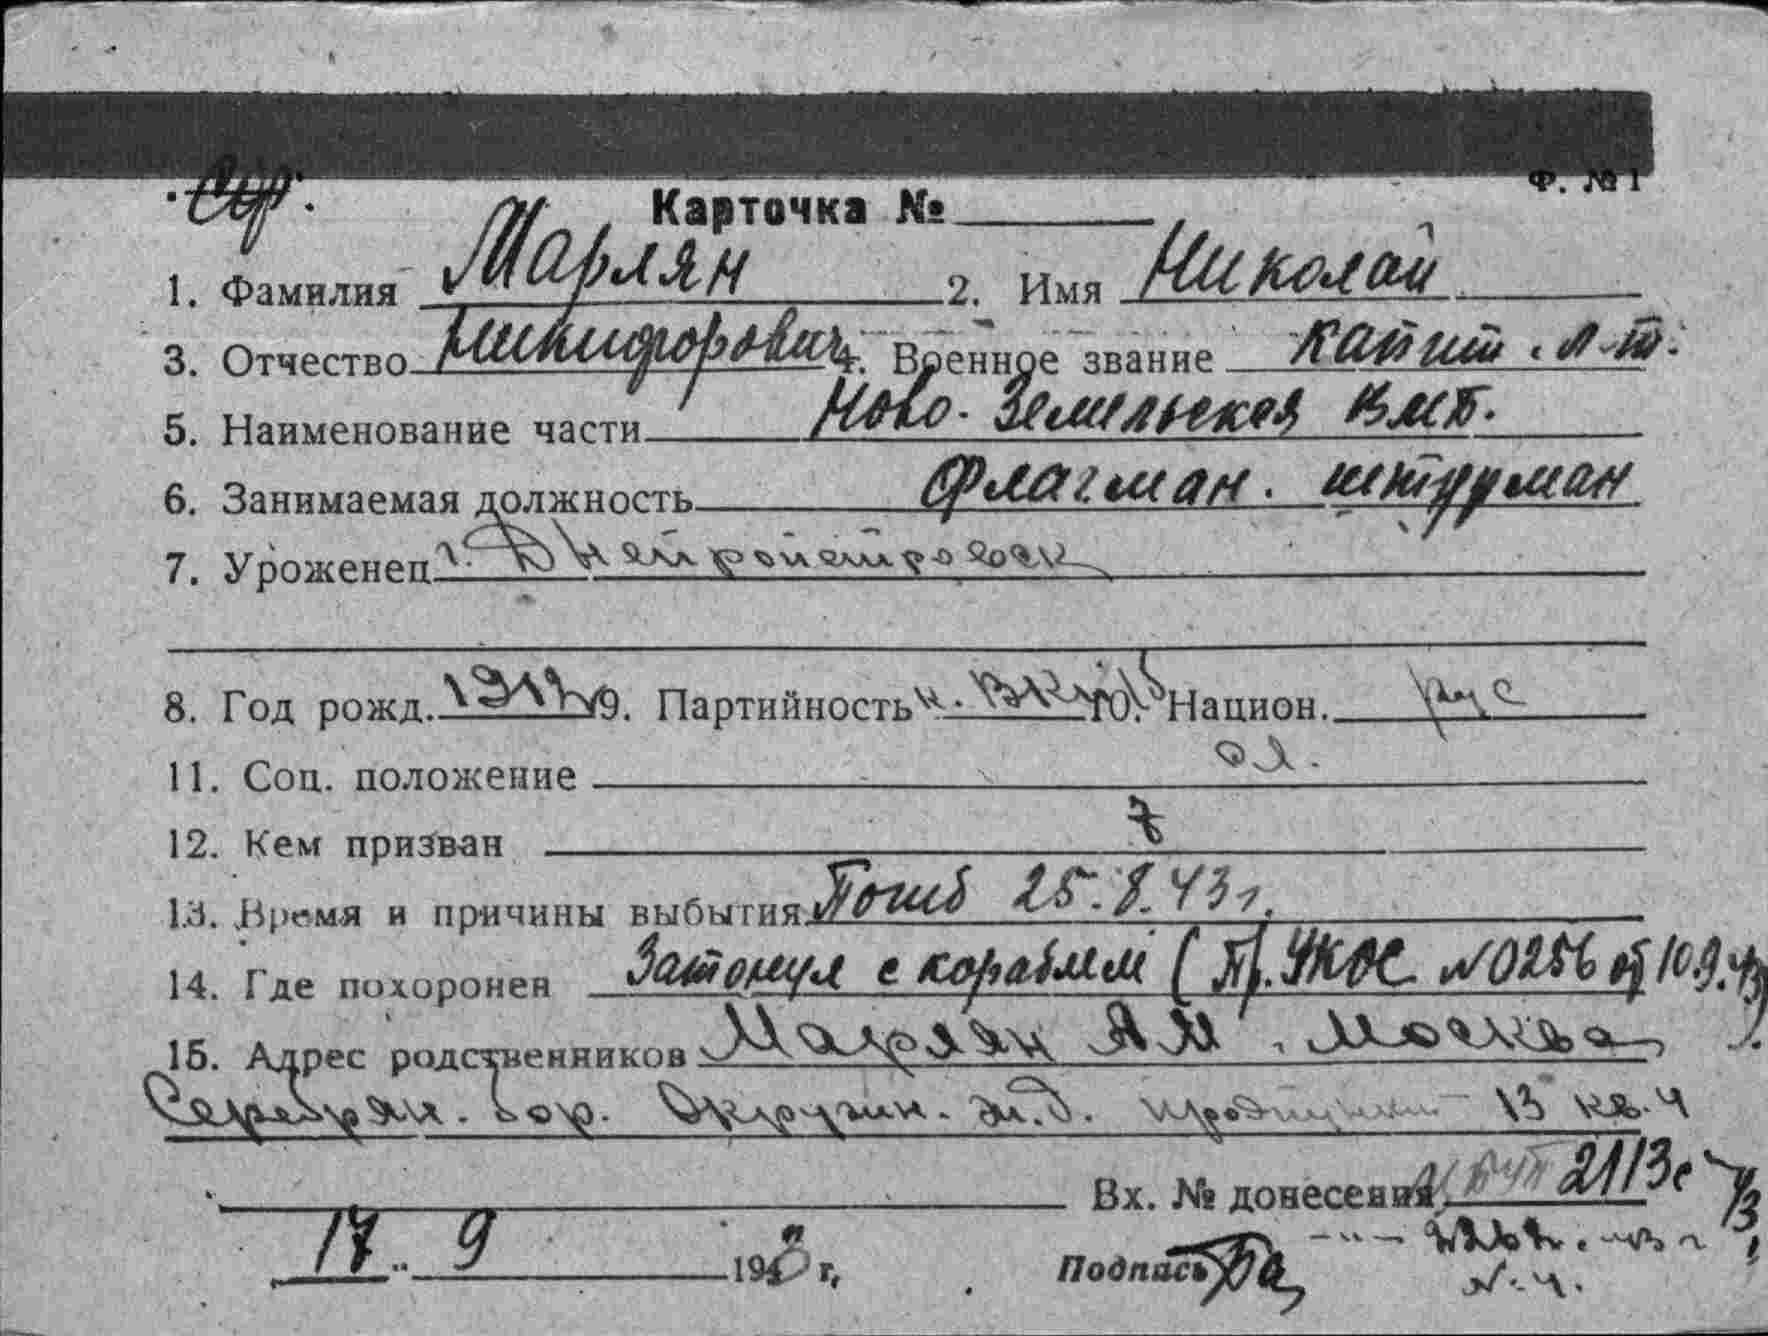 Ф. № 1
Карточка №
1. Фамилия Марлян 2. Имя Николай
3. Отчество Никифорович 4. Военное звание капит. л-т.
5. Наименование части Ново-Земельская ВМБ.
6. Занимаемая должность флагман. штурман
7. Уроженец г. Днепропетровск
8. Год рожд. 9. Партийность ВКП/б 10. Национ. рус
11. Соц. положение сл.
12. Кем призван
13. Время и причины выбытия Погиб 25.8.43 г.
14. Где похоронен Затонул с кораблем (Пр. УКОС №0256 от 10.9.43
15. Адрес родственников Марлян А М. Москва
Серебрян. бор. Окружн. ж.д. 13 кв. 4
Вх. № донесения 2113с
17. 9 1943 г.
Подпись